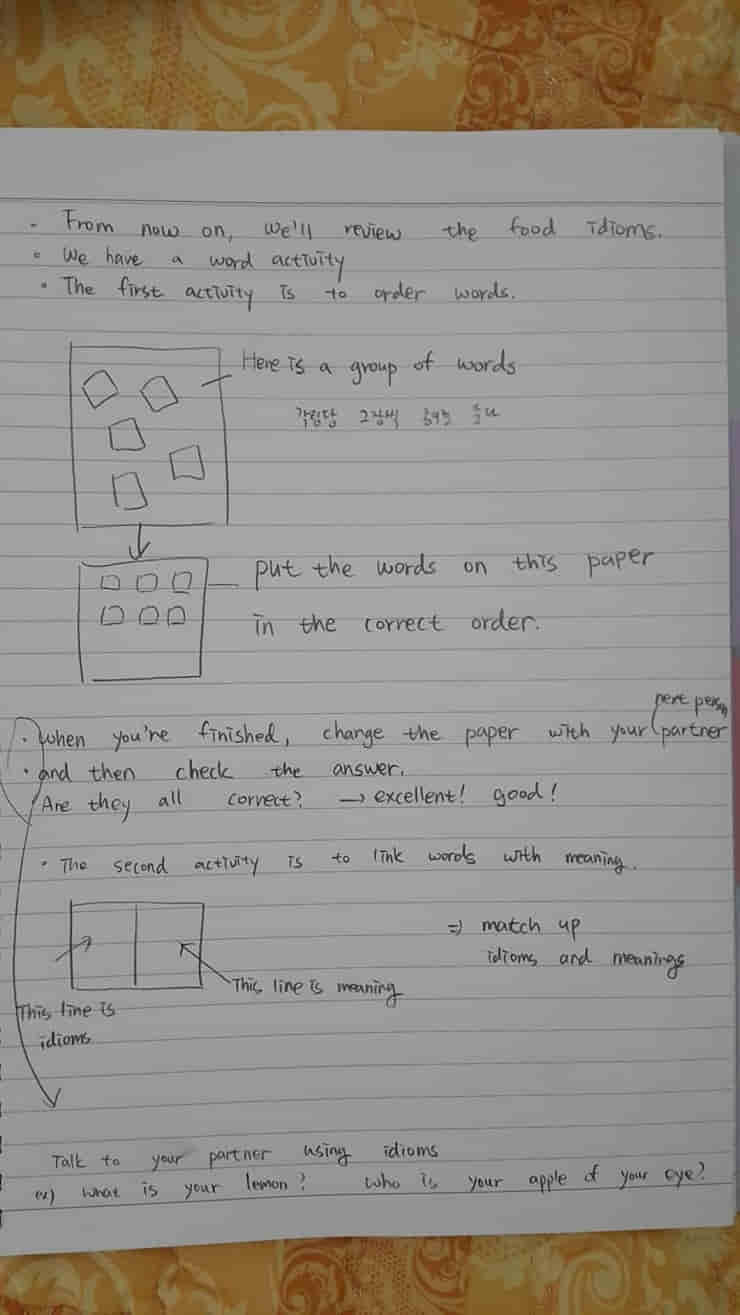 - From now on, we'll review the food idioms.
• We have a word activity
• The first activity is to order words.
Here is a group of words
put the words on this paper
in the correct order.
next person
• When you're finished, change the paper with your partner
• and then check the answer.
Are they all correct? → excellent! good!
• The second activity is to link words with meaning.
⇒ match up
idioms and meanings
This line is meaning
This line is
idioms
Talk to your partner using idioms
ex) what is your lemon? who is your apple of your eye?